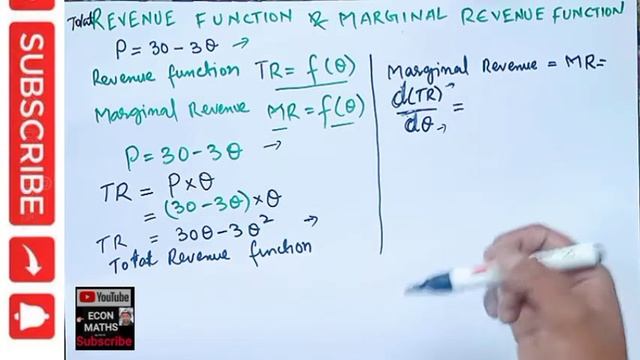 Total REVENUE FUNCTION & MARGINAL REVENUE FUNCTION
P = 30 - 3θ →
Revenue function TR = f(θ)
Marginal Revenue MR = f(θ)
P = 30 - 3θ →
TR = P × θ
= (30 - 3θ) × θ
TR = 30θ - 3θ² →
Total Revenue function
Marginal Revenue = MR =
d(TR) →
dθ → =
SUBSCRIBE
YouTube
ECON
MATHS
Subscribe